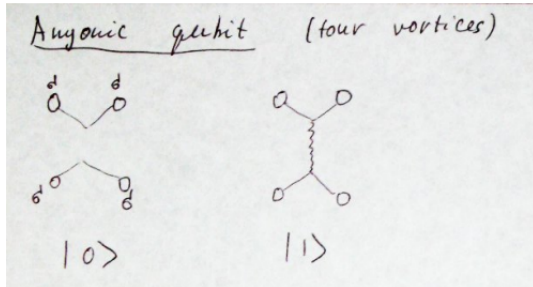 Anyonic qubit (four vortices)
σ σ
σ σ
|0> |1>